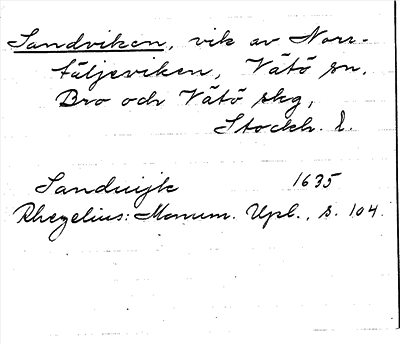 Sandviken, vik av Norr-
täljeviken, Vätö sn,
Bro och Vätö skg,
Stockh. l.
Sanduijk 1635
Rhezelius: Monum. Upl., s. 104.